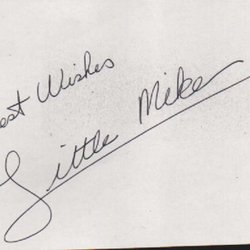 est Wishes
Little Mike